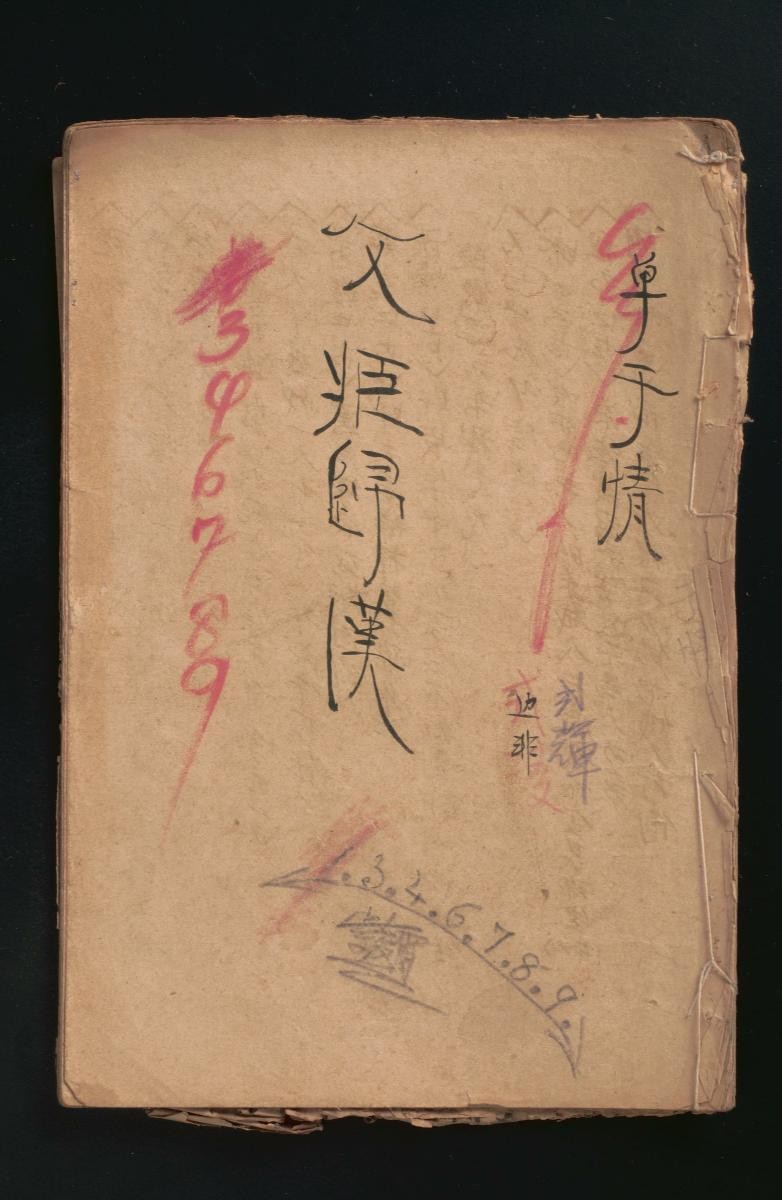 單于情
边非
輝
文姬歸漢
3 4 6 7 8 9
1.3.4.6.7.8.9.